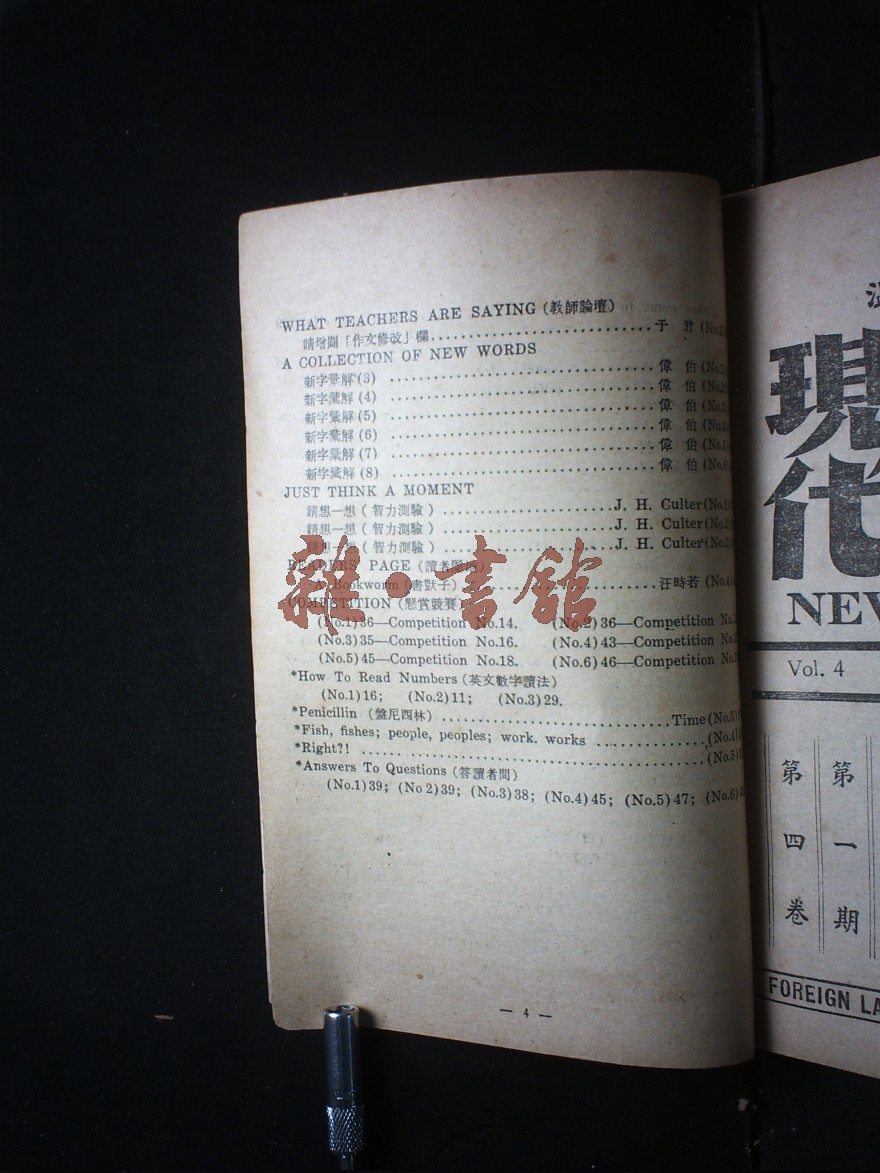 WHAT TEACHERS ARE SAYING (教師論壇)
請增闢「作文修改」欄 于 君 (No.2)
A COLLECTION OF NEW WORDS
新字彙解 (3) 偉 伯 (No.1)
新字彙解 (4) 偉 伯 (No.2)
新字彙解 (5) 偉 伯 (No.
新字彙解 (6) 偉 伯 (No.4)
新字彙解 (7) 偉 伯 (No.5)
新字彙解 (8) 偉 伯 (No.
JUST THINK A MOMENT
請想一想 (智力測驗) J. H. Culter (No.
請想一想 (智力測驗) J. H. Culter (No.
請想一想 (智力測驗) J. H. Culter (No.
READERS' PAGE (讀者
A Bookworm (書獃子) 汪時若 (No.4)
COMPETITION (懸賞競賽)
(No.1) 36—Competition No.14. (No.2) 36—Competition No.
(No.3) 35—Competition No.16. (No.4) 43—Competition No.
(No.5) 45—Competition No.18. (No.6) 46—Competition No.
*How To Read Numbers (英文數字讀法)
(No.1) 16; (No.2) 11; (No.3) 29.
*Penicillin (盤尼西林) Time (No.
*Fish, fishes; people, peoples; work. works (No.4)
*Right?! (No.5)
*Answers To Questions (答讀者問)
(No.1) 39; (No 2) 39; (No.3) 38; (No.4) 45; (No.5) 47; (No.6)
— 4 —
雜·書館
現
代
NEW
Vol. 4
第一期
第四卷
FOREIGN LA